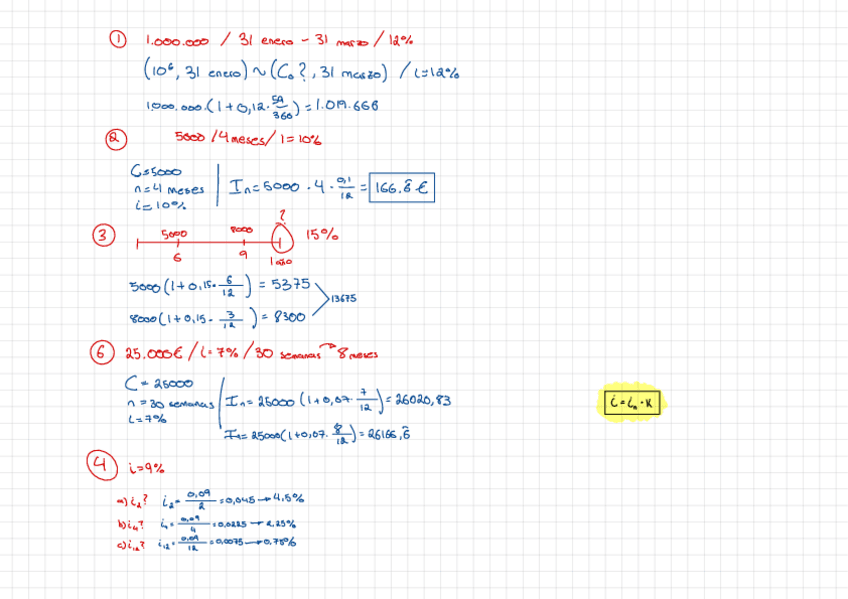 ① 1.000.000 / 31 enero - 31 marzo / 12%
(10⁶, 31 enero) ~ (Cₒ?, 31 marzo) / i=12%
1.000.000.(1+0,12·59/360)=1.019.666
② 5000 /4meses/ i=10%
C=5000
n=4 meses
i=10%
Iₙ=5000·4·0,1/12=166,6€
③ 5000 8000 ? 15%
6 9 1 año
5000(1+0,15·6/12)=5375
13675
8000(1+0,15·3/12)=8300
⑥ 25.000€/i=7%/30 semanas→8 meses
C=25000
n=30 semanas
i=7%
Iₙ=25000(1+0,07·7/12)=26020,83
Iₙ=25000(1+0,07·8/12)=26166,6
i=iₙ·k
④ i=9%
a)i₂? i₂=0,09/2=0,045→4,5%
b)i₄? i₄=0,09/4=0,0225→2,25%
c)i₁₂? i₁₂=0,09/12=0,0075→0,75%